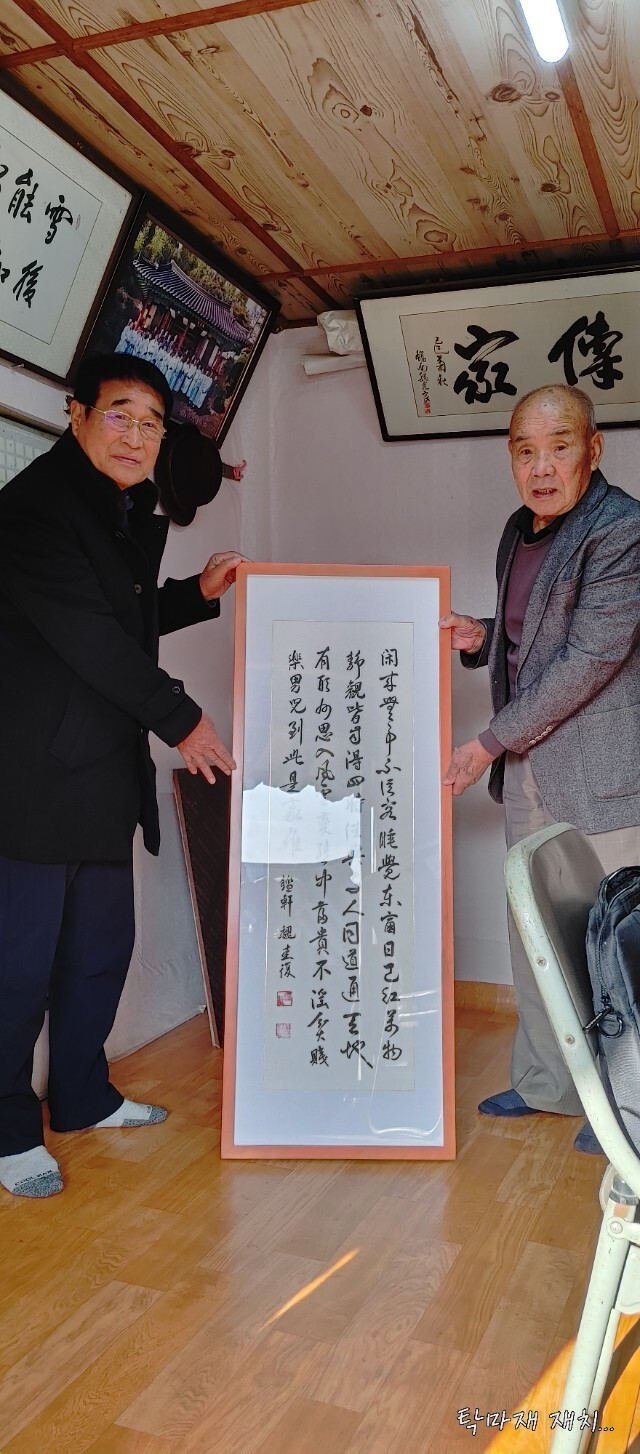 雪後
能知
傳家
閑來無事不從容睡覺東窗日已紅萬物
靜觀皆自得四時佳興與人同道通天地
有形外思入風雲變態中富貴不淫貧賤
樂男兒到此是豪雄 軒 魏圭復
탁마재 재치...